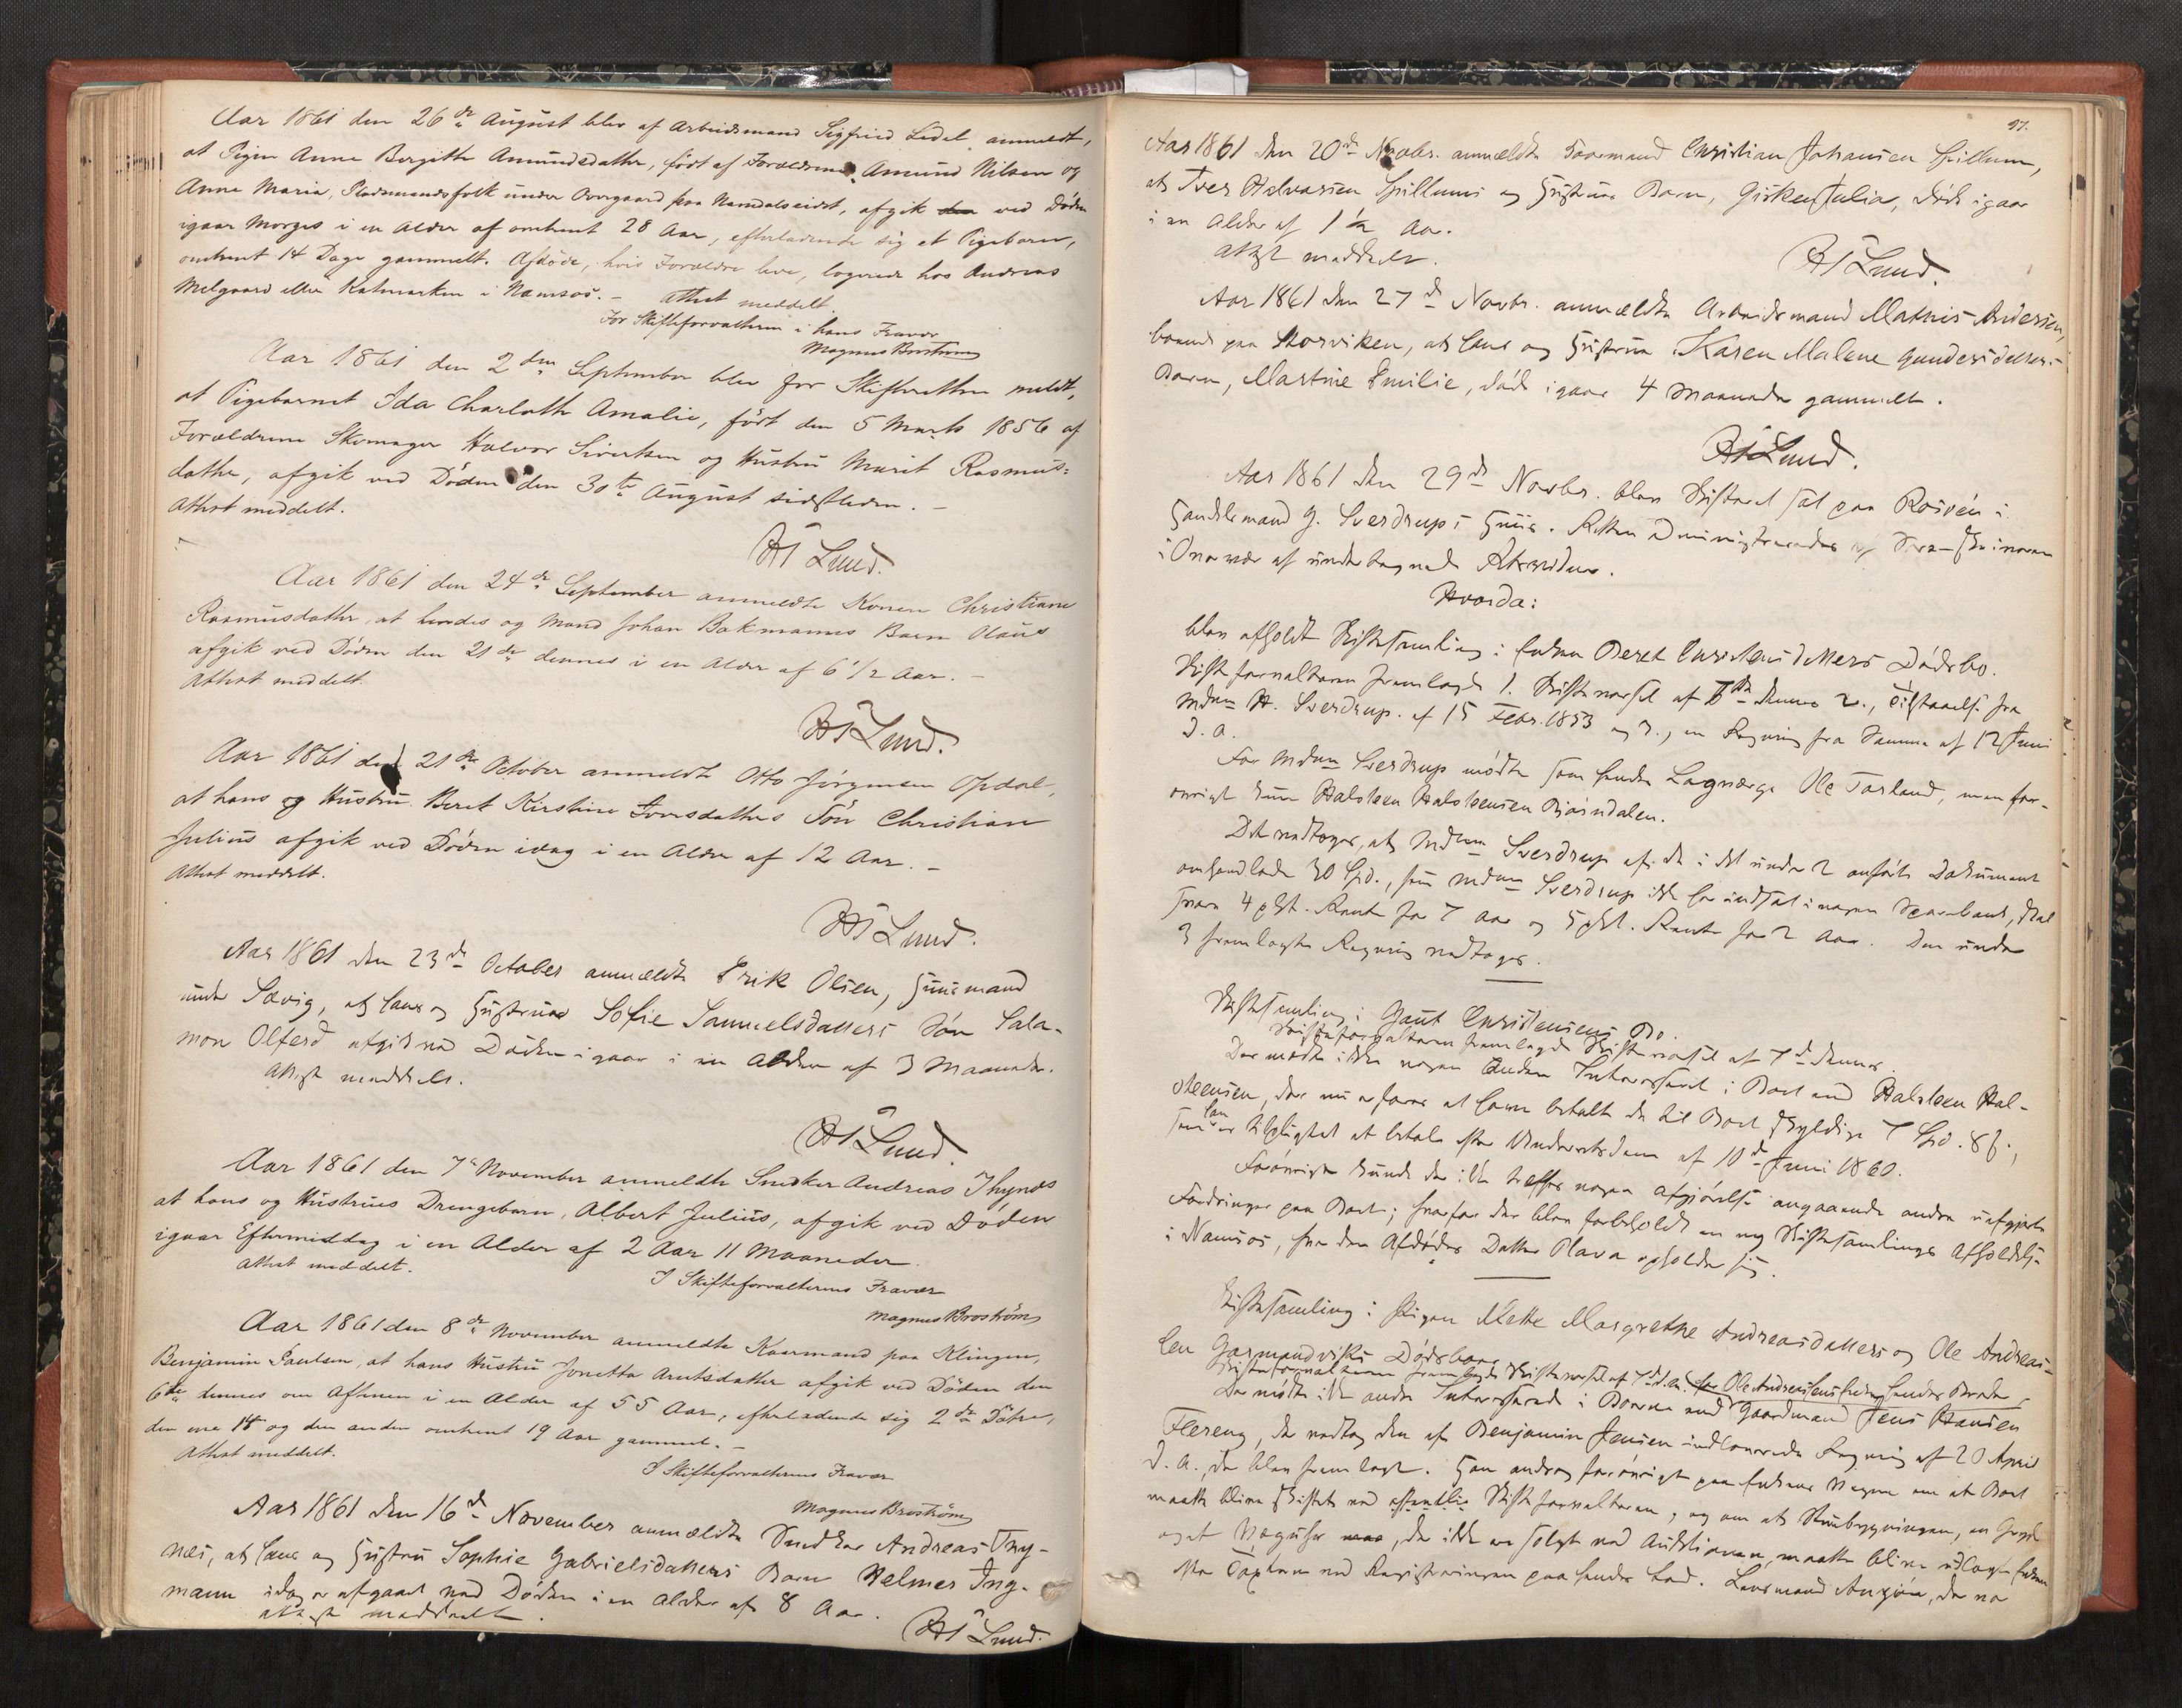 Aar 1861 den 26de August blev af Arbeidsmand Sigfried Ledel anmeldt,
at Pigen Anne Bergitte Amundsdatter, født af Forældrene Amund Nilsen og
Anne Maria, Pladsmandsfolk under Overgaard paa Namdalseidet, afgik ved Døden
igaar Morges i en Alder af omtrent 28 Aar, efterladende sig et Pigebarn,
omtrent 14 Dage gammelt. Afdøde, hvis Forældre leve, logerede hos Andreas
Melgaard eller Katmarken i Namsos. – Attest meddelt.
For Skifteforvalteren i hans Fravær
Magnus Broström
Aar 1861 den 2den September blev for Skifteretten meldt,
at Pigebarnet Ida Charlotte Amalie, født den 5 Marts 1856 af
Forældrene Skomager Halvor Sivertsen og Hustru Marit Rasmus=
datter, afgik ved Døden den 30te August sidstleden. –
Attest meddelt.
HS Lund.
Aar 1861 den 24de September anmeldte Konen Christiane
Rasmusdatter, at hendes og Mand Johan Bakmanns Barn Olaus
afgik ved Døden den 21de dennes i en Alder af 6 1/2 Aar. –
Attest meddelt.
HS Lund.
Aar 1861 den 21de October anmeldte Otto Jørgensen Opdal,
at hans og Hustru Beret Kirstine Iversdatters Søn Christian
Julius afgik ved Døden idag i en Alder af 12 Aar. –
Attest meddelt.
HS Lund.
Aar 1861 den 23de October anmeldte Erik Olsen, Huusmand
under Sævig, at hans og Hustrues Sofie Samuelsdatters Søn Sala-
mon Olferd afgik ved Døden igaar i en Alder af 3 Maaneder.
Attest meddelt.
HS Lund.
Aar 1861 den 7de November anmeldte Snedker Andreas Thynes
at hans og Hustrues Drengebarn, Albert Julius, afgik ved Døden
igaar Eftermiddag i en Alder af 2 Aar 11 Maaneder.
Attest meddelt.
I Skifteforvalterens Fravær
Magnus Broström
Aar 1861 den 8de November anmeldte Kaarmand paa Klingen,
Benjamin Paulsen, at hans Hustru Jonetta Arntsdatter afgik ved Døden den
6te dennes om Aftenen i en Alder af 55 Aar, efterladende sig 2de Døtre,
den ene 15 og den anden omtrent 19 Aar gammel. –
Attest meddelt.
I Skifteforvalterens Fravær
Magnus Broström
Aar 1861 den 16de November anmeldte Snedker Andreas Thy-
næs, at hans og Hustru Sophie Gabrielsdatters Barn Helmer Ing-
mann idag er afgaaet ved Døden i en Alder af 8 Aar.
Attest meddeelt.
HS Lund.
97.
Aar 1861 den 20de Novbr. anmeldte Kaarmand Christian Johansen Spillum,
at Iver Halvorsen Spillums og Hustrues Barn, Gisken Julia, døde igaar
i en Alder af 1 1/2 Aar.
Attest meddeelt.
HS Lund.
Aar 1861 den 27de Novbr. anmeldte Arbeidsmand Mathis Andersen,
boende paa Storviken, at hans og Hustrue Karen Malene Gundersdatters
Barn, Martine Emilie, døde igaar 4 Maaneder gammelt.
HS Lund.
Aar 1861 den 29de Novbr. blev Skifteret sat paa Rosvén i
Handelsmand G. Sverdrups Huus. Retten administreredes af Sorenskriveren
i Overvær af undertegnede Vidner.
Hvorda:
blev afholdt Skiftesamling i Enken Beret Christensdatters Dødsbo.
Skifteforvalteren fremlagde 1. Skiftevarsel af 7de dennes 2., Tilstaaelse fra
Mdm H. Sverdrup af 15 Febr. 1853 og 3., en Regning fra Samme af 12 Juni
d. A.
For Mdm Sverdrup mødte som hendes Laugværge Ole Torland, men for-
øvrigt kun Halsteen Halsteensen Bjørndalen.
Det vedtoges, at Mdm Sverdrup af de i det under 2 anførte Dokument
omhandlede 30 Spd., som Mdm Sverdrup ikke har indsat i nogen Sparebank, skal
svare 4 pCt. Rente for 7 Aar og 5 pCt. Rente for 2 Aar. Den under
3 fremlagte Regning vedtoges.
Skiftesamling i Gaut Christensens Bo.
Skifteforvalteren fremlagde Skiftevarsel af 7de dennes.
Der mødte ikke nogen Anden Interesseret i Boet end Halsteen Hal-
steensen, der nu erfares at have betalt de til Boet skyldige 7 Spd. 8 ß,
som han er tilpligtet at betale efter Underretsdom af 10de Juni 1860.
Forøvrigt kunde der ikke træffes nogen Afgjørelse angaaende andre uafgjorte
Fordringer paa Boet; hvorfor der blev forbeholdt en ny Skiftesamlings Afholdelse
i Namsos, hvor den Afdødes Datter Olava opholder sig.
Skiftesamling i Pigen Mette Margrethe Andreasdatters og Ole Andreas-
sen Gaasmandviks Dødsboer
Skifteforvalteren fremlagde Skiftevarsel af 7de d.M.
Der mødte ikke andre Interesserede i Boerne end Gaardmand Jens Hansen
Flereng, der vedtog den af Benjamin Jensen indleverede Regning af 20 April
d. A., der blev fremlagt. Han androg forøvrigt paa Enkens Vegne om at Boet
maatte blive skiftet ved offentlig Skifteforvalteren, og om at Stuebygningen, en Gryde
og et Væguhr, der ikke er solgt ved Auktionen, maatte blive udlagt Enken
efter Taxten ved Registreringen paa hendes Lod. Lensmand Anzjøn, der va